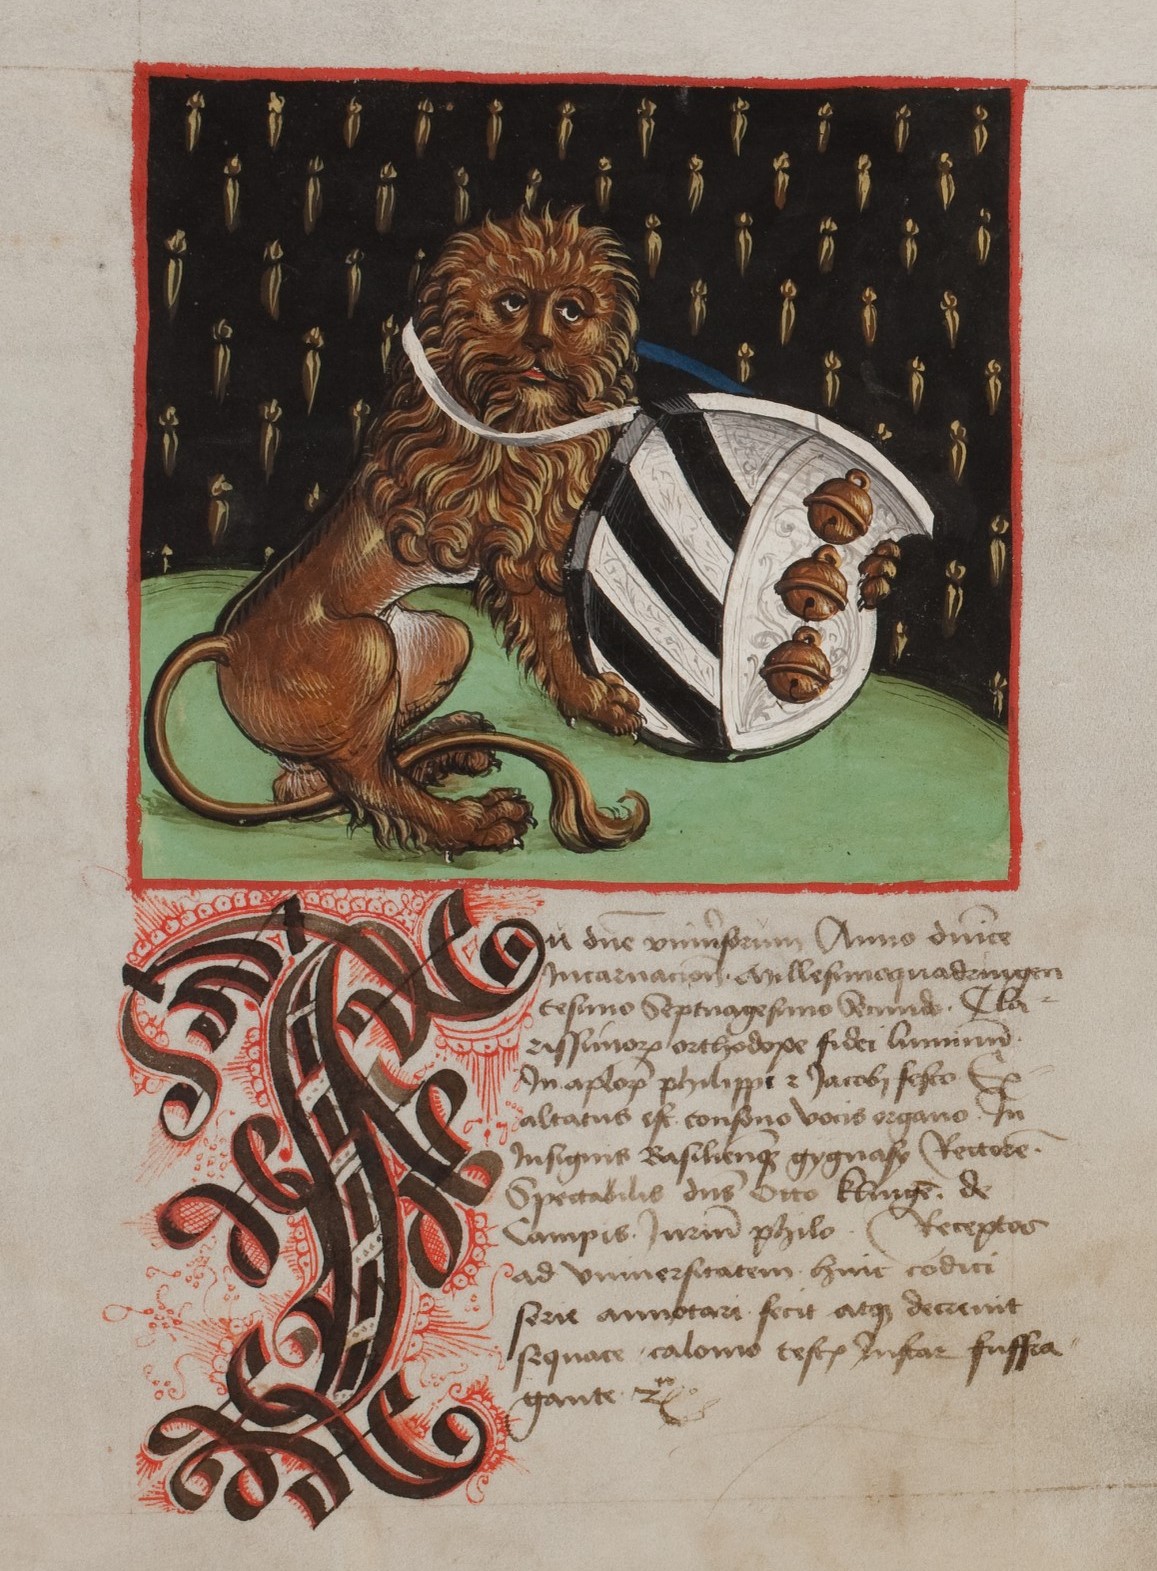 In dn̄e vniu̓sorum Anno dn̄ice
Incarnacion̄. Millesimoquadringen
tesimo Septuagesimo Secundo. Cla-
rissimorꝝ orthodoxe fidei luminū.
In aplorꝝ philippi ⁊ Jacobj festo Ex-
altatus est consono vocis organo In
Insignis Basilien̄ gygnasÿ Rectorē.
Spectabilis dn̄s Otto klingē. de
Campis. Jurium̄ philo. Receptos
ad vniuersitatem. huic codici
serie annotari fecit atqꝫ decreuit
sequace calomo Instar suffra-
gante.